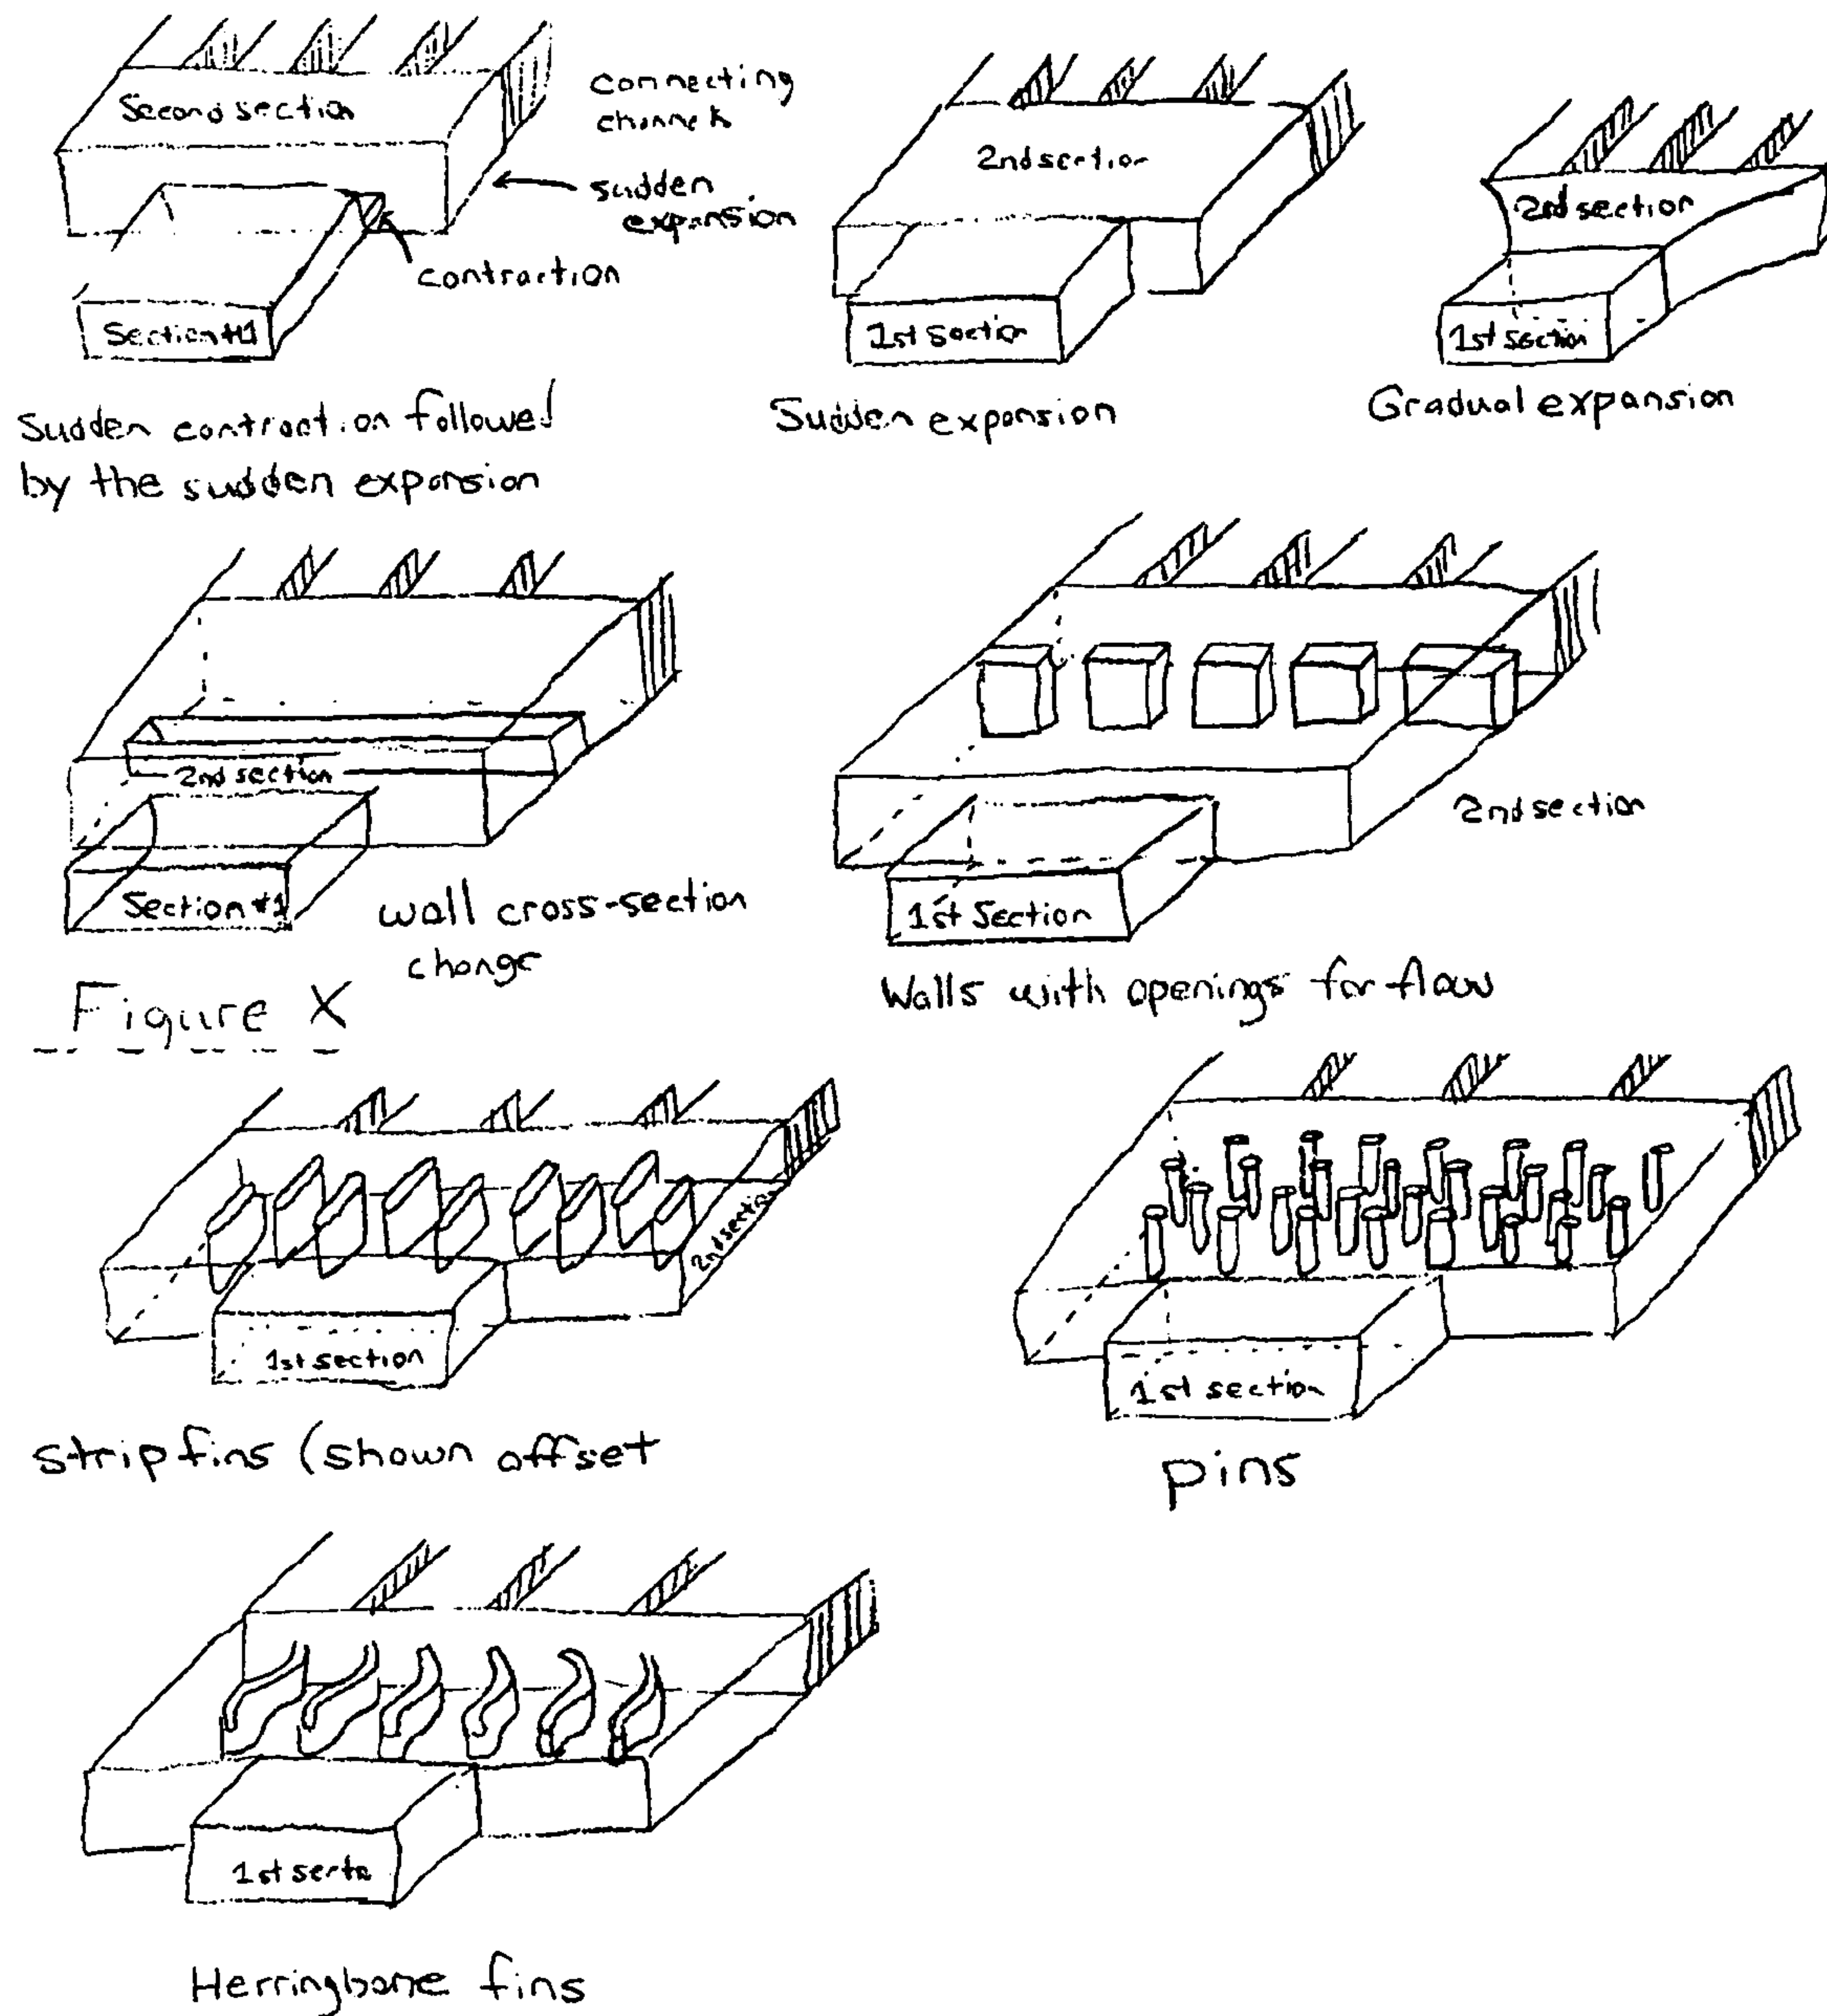 Second section
connecting
channels
sudden
expansion
contraction
Section #1
Sudden contraction followed
by the sudden expansion
2nd section
1st section
Sudden expansion
2nd section
1st section
Gradual expansion
2nd section
Section #1
wall cross-section
change
Figure X
2nd section
1st Section
Walls with openings for flow
2nd section
1st section
strip fins (shown offset
1st section
pins
1st sectn
Herringbone fins